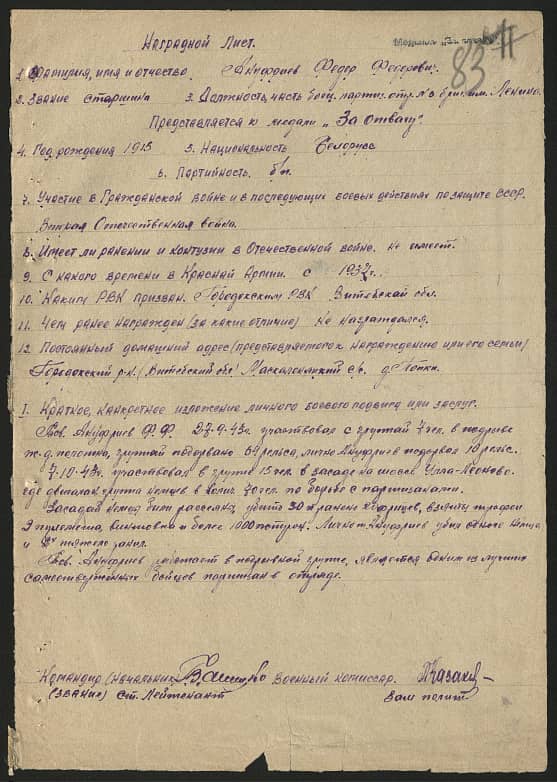 83
Наградной Лист.
1. Фамилия, имя и отчество Ануфриев Федор Федорович.
2. Звание старшина 3. Должность, часть боец партиз. отр. №3 бриг. им. Ленина.
Представляется к медали „За отвагу".
4. Год рождения 1915 5. Национальность Белорусс
6. Партийность. б/п.
7. Участие в Гражданской войне и в последующих боевых действиях по защите СССР.
Вторая Отечественная война.
8. Имеет ли ранении и контузии в Отечественной войне. не имеет.
9. С какого времени в Красной Армии. с 1937г.
10. Каким РВК призван. Городокским РВК Витебской обл.
11. Чем ранее награжден (за какие отличие) Не награждался.
12. Постоянный домашний адрес (представляемого к награждению или его семьи)
Городокский р-н, Витебской обл. с/с. д. Попки.
I. Краткое, канкретное изложение личного боевого подвига или заслуг.
Тов. Ануфриев Ф.Ф. 27.9.43г. участвовал с группай 7 чел. в подрыве
ж.д. полотна, группай подорвано 64 рельса, лично Ануфриев подорвал 10 рельс.
7.10.43г. участвовал в группе 15 чел. в засаде на шоссе Улла-
где двигалась группа немцев в колич. 70 чел. по борьбе с партизанами.
Засадой немец был рассеян, убито 30 и ранено взяты трофеи
3 пулемета, винтовки и более 1000 патрон. Лично т. Ануфриев убил одного немца
и тяжело ранил.
Тов. Ануфриев работает в подрывной группе, является одним из лучших
самоотверженных бойцев партизан в отряде.
Командир (начальник) Военный комиссар. Казаков
(звание) Ст. Лейтенант Зам полит.